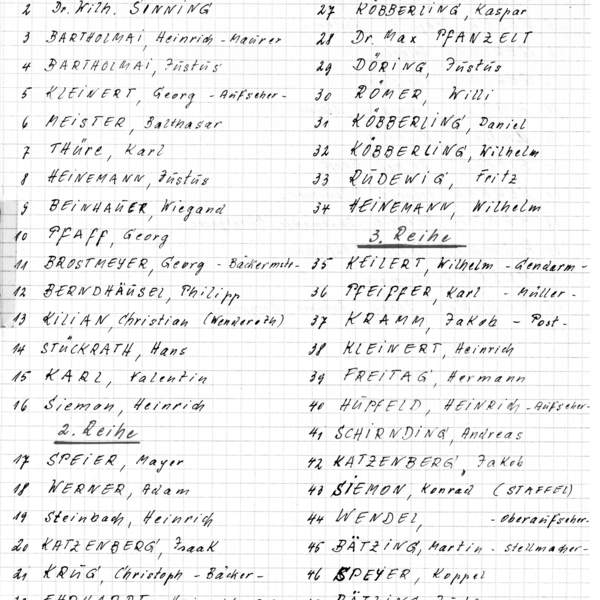 2 Dr. Wilh. SINNING
3 BARTHOLMAI, Heinrich - Maurer
4 BARTHOLMAI, Justus
5 KLEINERT, Georg - Aufseher -
6 MEISTER, Balthasar
7 THÜRE, Karl
8 HEINEMANN, Justus
9 BEINHAUER, Wiegand
10 PFAFF, Georg
11 BROSTMEYER, Georg - Bäckermstr-
12 BERNDHÄUSEL, Philipp
13 KILIAN, Christian (Wenderoth)
14 STÜCKRATH, Hans
15 KARL, Valentin
16 Siemon, Heinrich
2. Reihe
17 SPEIER, Mayer
18 WERNER, Adam
19 Steinbach, Heinrich
20 KATZENBERG, Isaak
21 KRUG, Christoph - Bäcker -
27 KÖBBERLING, Kaspar
28 Dr. Max PFANZELT
29 DÖRING, Justus
30 RÖMER, Willi
31 KÖBBERLING, Daniel
32 KÖBBERLING, Wilhelm
33 RUDEWIG, Fritz
34 HEINEMANN, Wilhelm
3. Reihe
35 KEILERT, Wilhelm - Gendarm -
36 PFEIFFER, Karl - Müller -
37 KRAMM, Jakob - Post -
38 KLEINERT, Heinrich
39 FREITAG, Hermann
40 HUPFELD, HEINRICH - Aufseher-
41 SCHIRNDING, Andreas
42 KATZENBERG, Jakob
43 SIEMON, Konrad (STAFFEL)
44 WENDEL, - Oberaufseher-
45 BÄTZING, Martin - Stellmacher-
46 SPEYER, Koppel